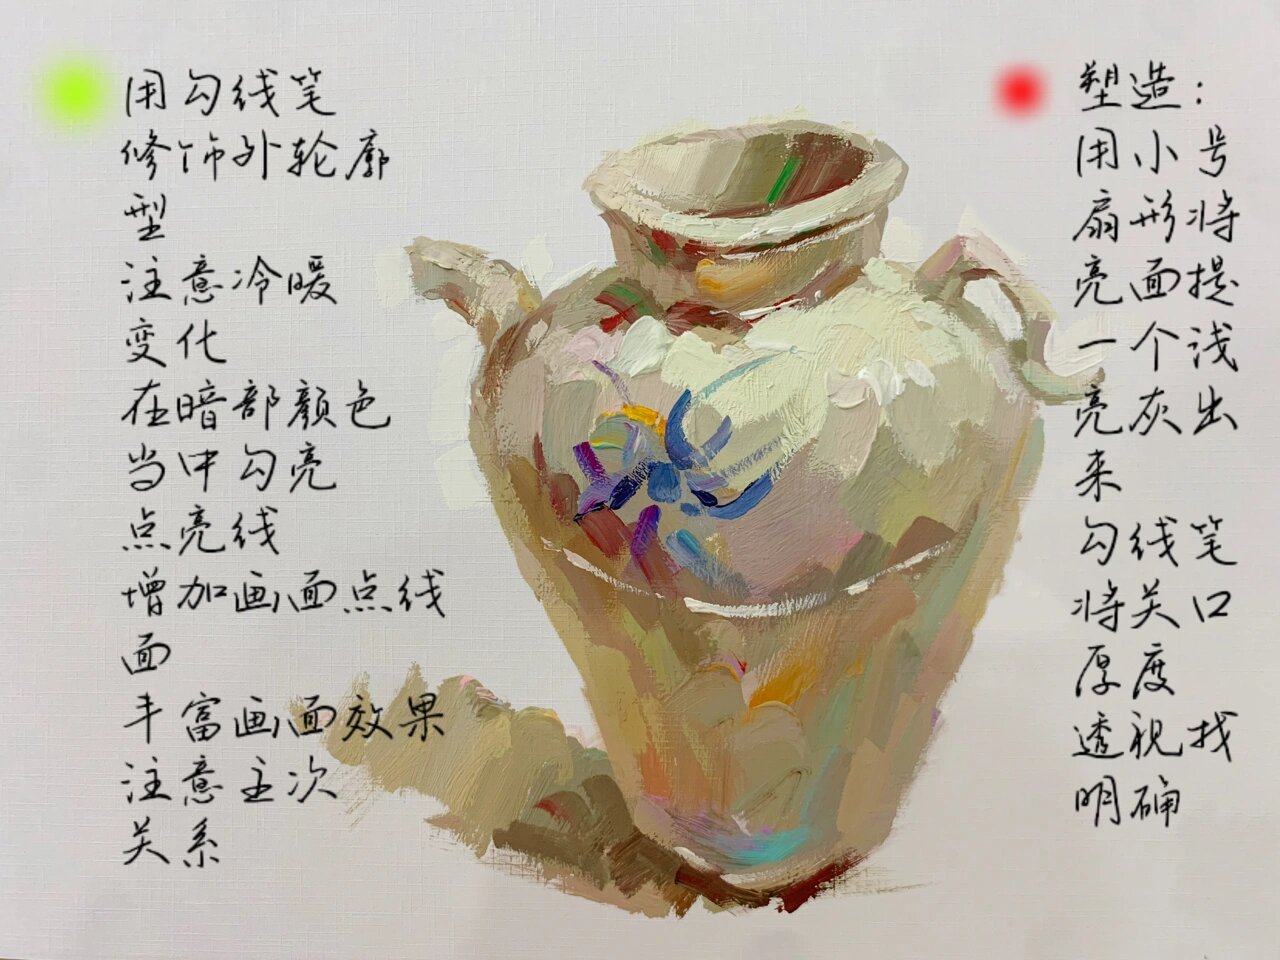 用勾线笔
修饰外轮廓
型
注意冷暖
变化
在暗部颜色
当中勾亮
点亮线
增加画面点线
面
丰富画面效果
注意主次
关系
塑造：
用小号
扇形将
亮面提
一个浅
亮灰出
来
勾线笔
将关口
厚度
透视找
明确